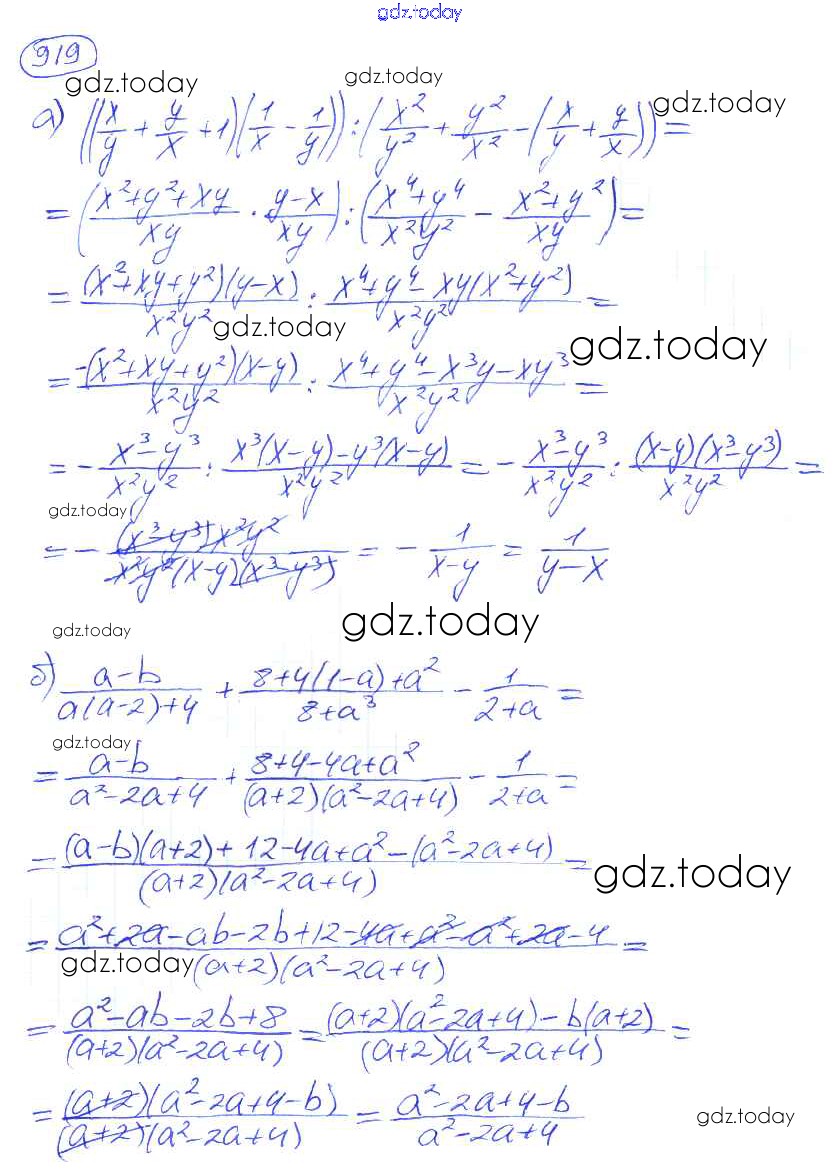 gdz.today
919
gdz.today gdz.today gdz.today
а) ((x/y + y/x + 1)(1/x - 1/y)) : (x²/y² + y²/x² - (x/y + y/x)) =
= ((x²+y²+xy)/xy · (y-x)/xy) : ((x⁴+y⁴)/x²y² - (x²+y²)/xy) =
= (x²+xy+y²)(y-x)/x²y² : (x⁴+y⁴-xy(x²+y²))/x²y² =
gdz.today gdz.today
= -(x²+xy+y²)(x-y)/x²y² : (x⁴+y⁴-x³y-xy³)/x²y² =
= - (x³-y³)/x²y² : (x³(x-y)-y³(x-y))/x²y² = - (x³-y³)/x²y² : (x-y)(x³-y³)/x²y² =
gdz.today
= - (x³-y³)x²y²/x²y²(x-y)(x³-y³) = - 1/(x-y) = 1/(y-x)
gdz.today gdz.today
б) (a-b)/(a(a-2)+4) + (8+4(1-a)+a²)/(8+a³) - 1/(2+a) =
gdz.today
= (a-b)/(a²-2a+4) + (8+4-4a+a²)/((a+2)(a²-2a+4)) - 1/(2+a) =
= ((a-b)(a+2)+12-4a+a²-(a²-2a+4))/((a+2)(a²-2a+4)) =
gdz.today
= (a²+2a-ab-2b+12-4a+a²-a²+2a-4)/((a+2)(a²-2a+4)) =
gdz.today
= (a²-ab-2b+8)/((a+2)(a²-2a+4)) = ((a+2)(a²-2a+4)-b(a+2))/((a+2)(a²-2a+4)) =
= (a+2)(a²-2a+4-b)/((a+2)(a²-2a+4)) = (a²-2a+4-b)/(a²-2a+4)
gdz.today